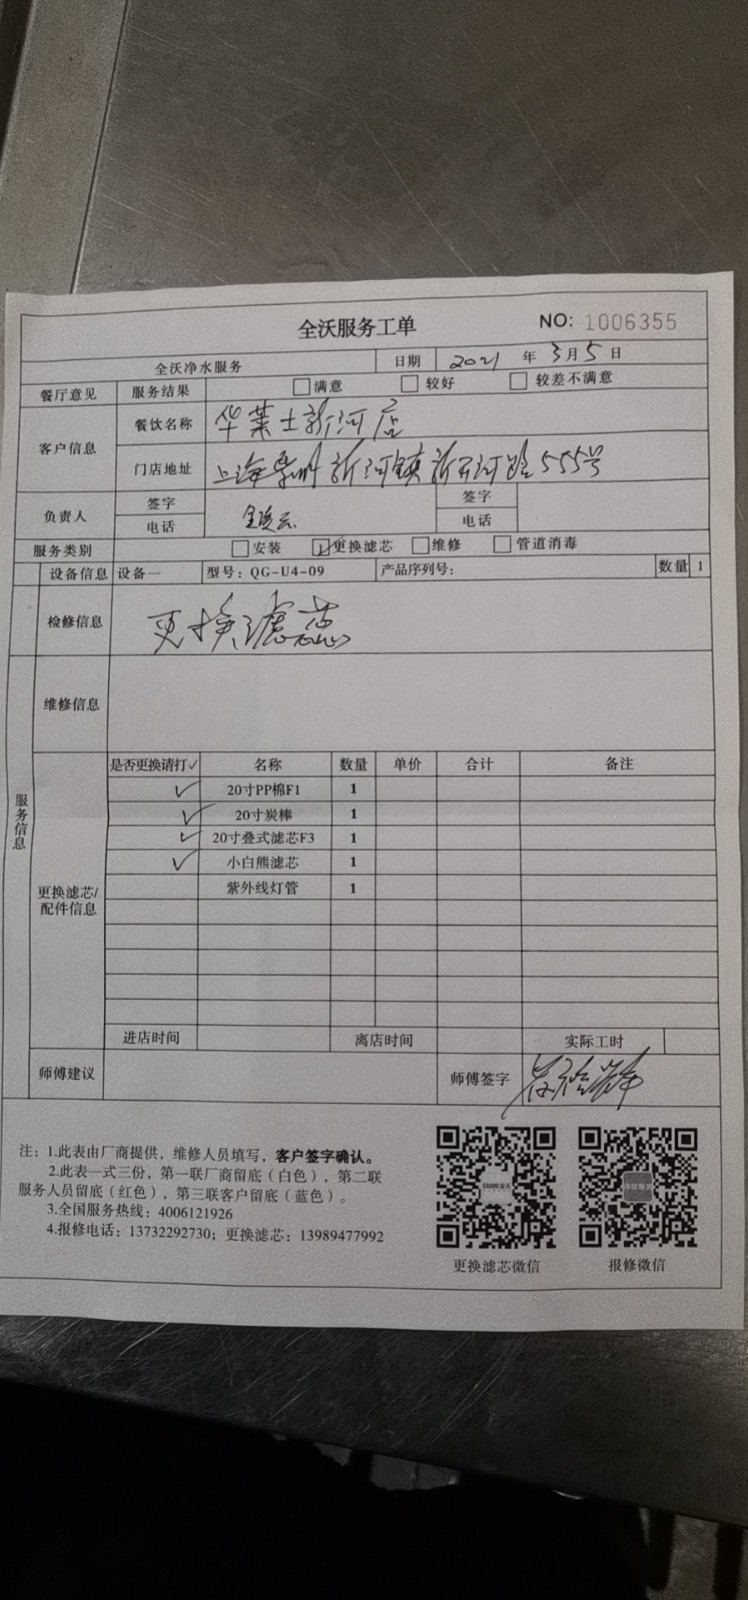 全沃服务工单 NO: 1006355
全沃净水服务 日期 2021 年 3 月 5 日
餐厅意见 服务结果 满意 较好 较差不满意
客户信息 餐饮名称 华莱士新河店
门店地址 上海崇明新河镇新开河路555号
负责人 签字 签字
电话 电话
服务类别 安装 更换滤芯 维修 管道消毒
设备信息 设备一 型号: QG-U4-09 产品序列号: 数量 1
检修信息 更换滤芯
维修信息
服务信息
是否更换请打✓ 名称 数量 单价 合计 备注
✓ 20寸PP棉F1 1
✓ 20寸炭棒 1
✓ 20寸叠式滤芯F3 1
✓ 小白熊滤芯 1
紫外线灯管 1
更换滤芯/
配件信息
进店时间 离店时间 实际工时
师傅建议 师傅签字
注: 1.此表由厂商提供，维修人员填写，客户签字确认。
2.此表一式三份，第一联厂商留底（白色），第二联
服务人员留底（红色），第三联客户留底（蓝色）。
3.全国服务热线: 4006121926
4.报修电话: 13732292730; 更换滤芯: 13989477992
更换滤芯微信 报修微信